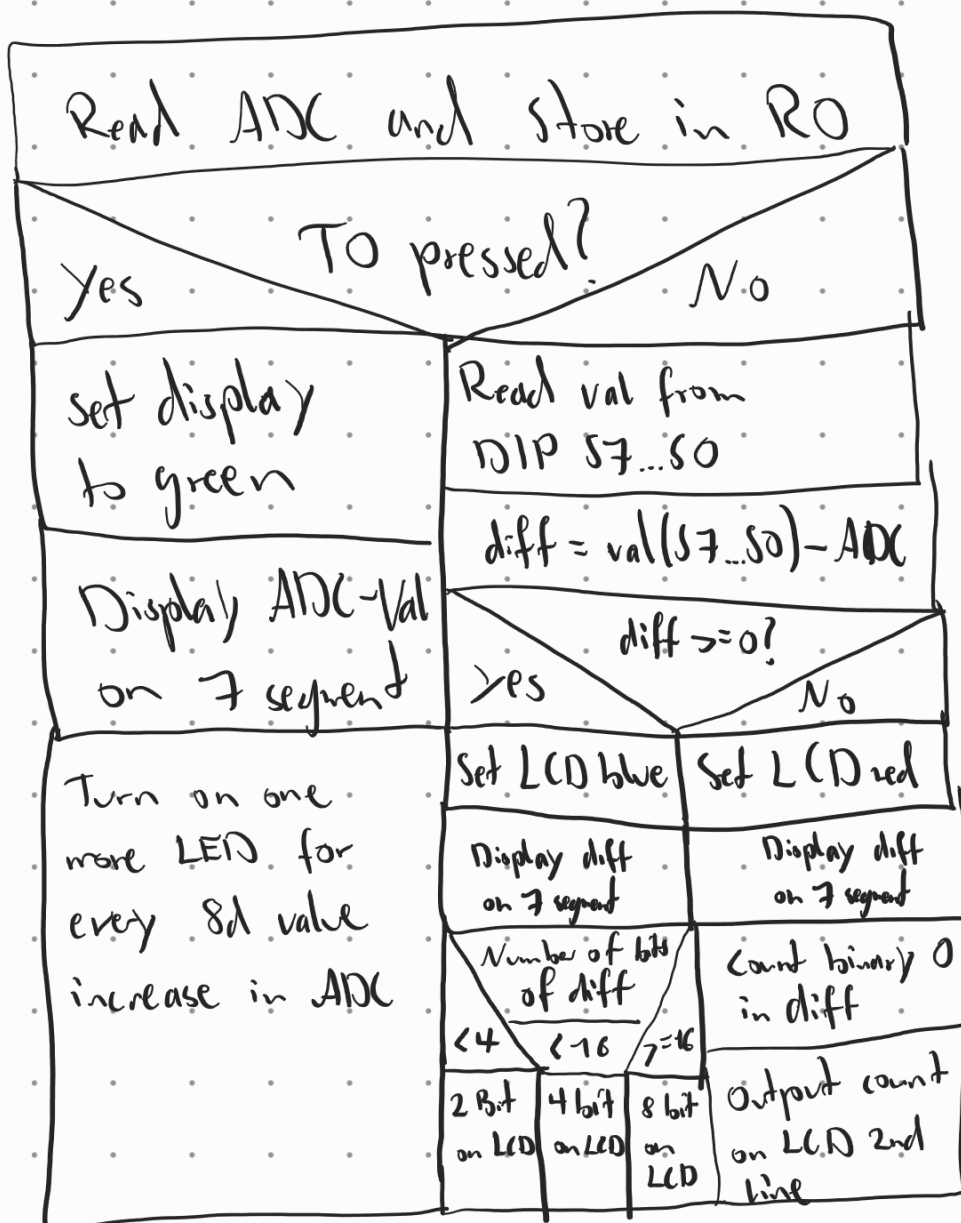 Read ADC and store in R0
T0 pressed?
Yes
No
set display
to green
Display ADC-Val
on 7 segment
Turn on one
more LED for
every 8d value
increase in ADC
Read val from
DIP S7...S0
diff = val(S7...S0)-ADC
diff >=0?
Yes
No
Set LCD blue
Display diff
on 7 segment
Number of bits
of diff
<4
<16
>=16
2 Bit
on LCD
4 bit
on LCD
8 bit
on
LCD
Set LCD red
Display diff
on 7 segment
Count binary 0
in diff
Output count
on LCD 2nd
Line